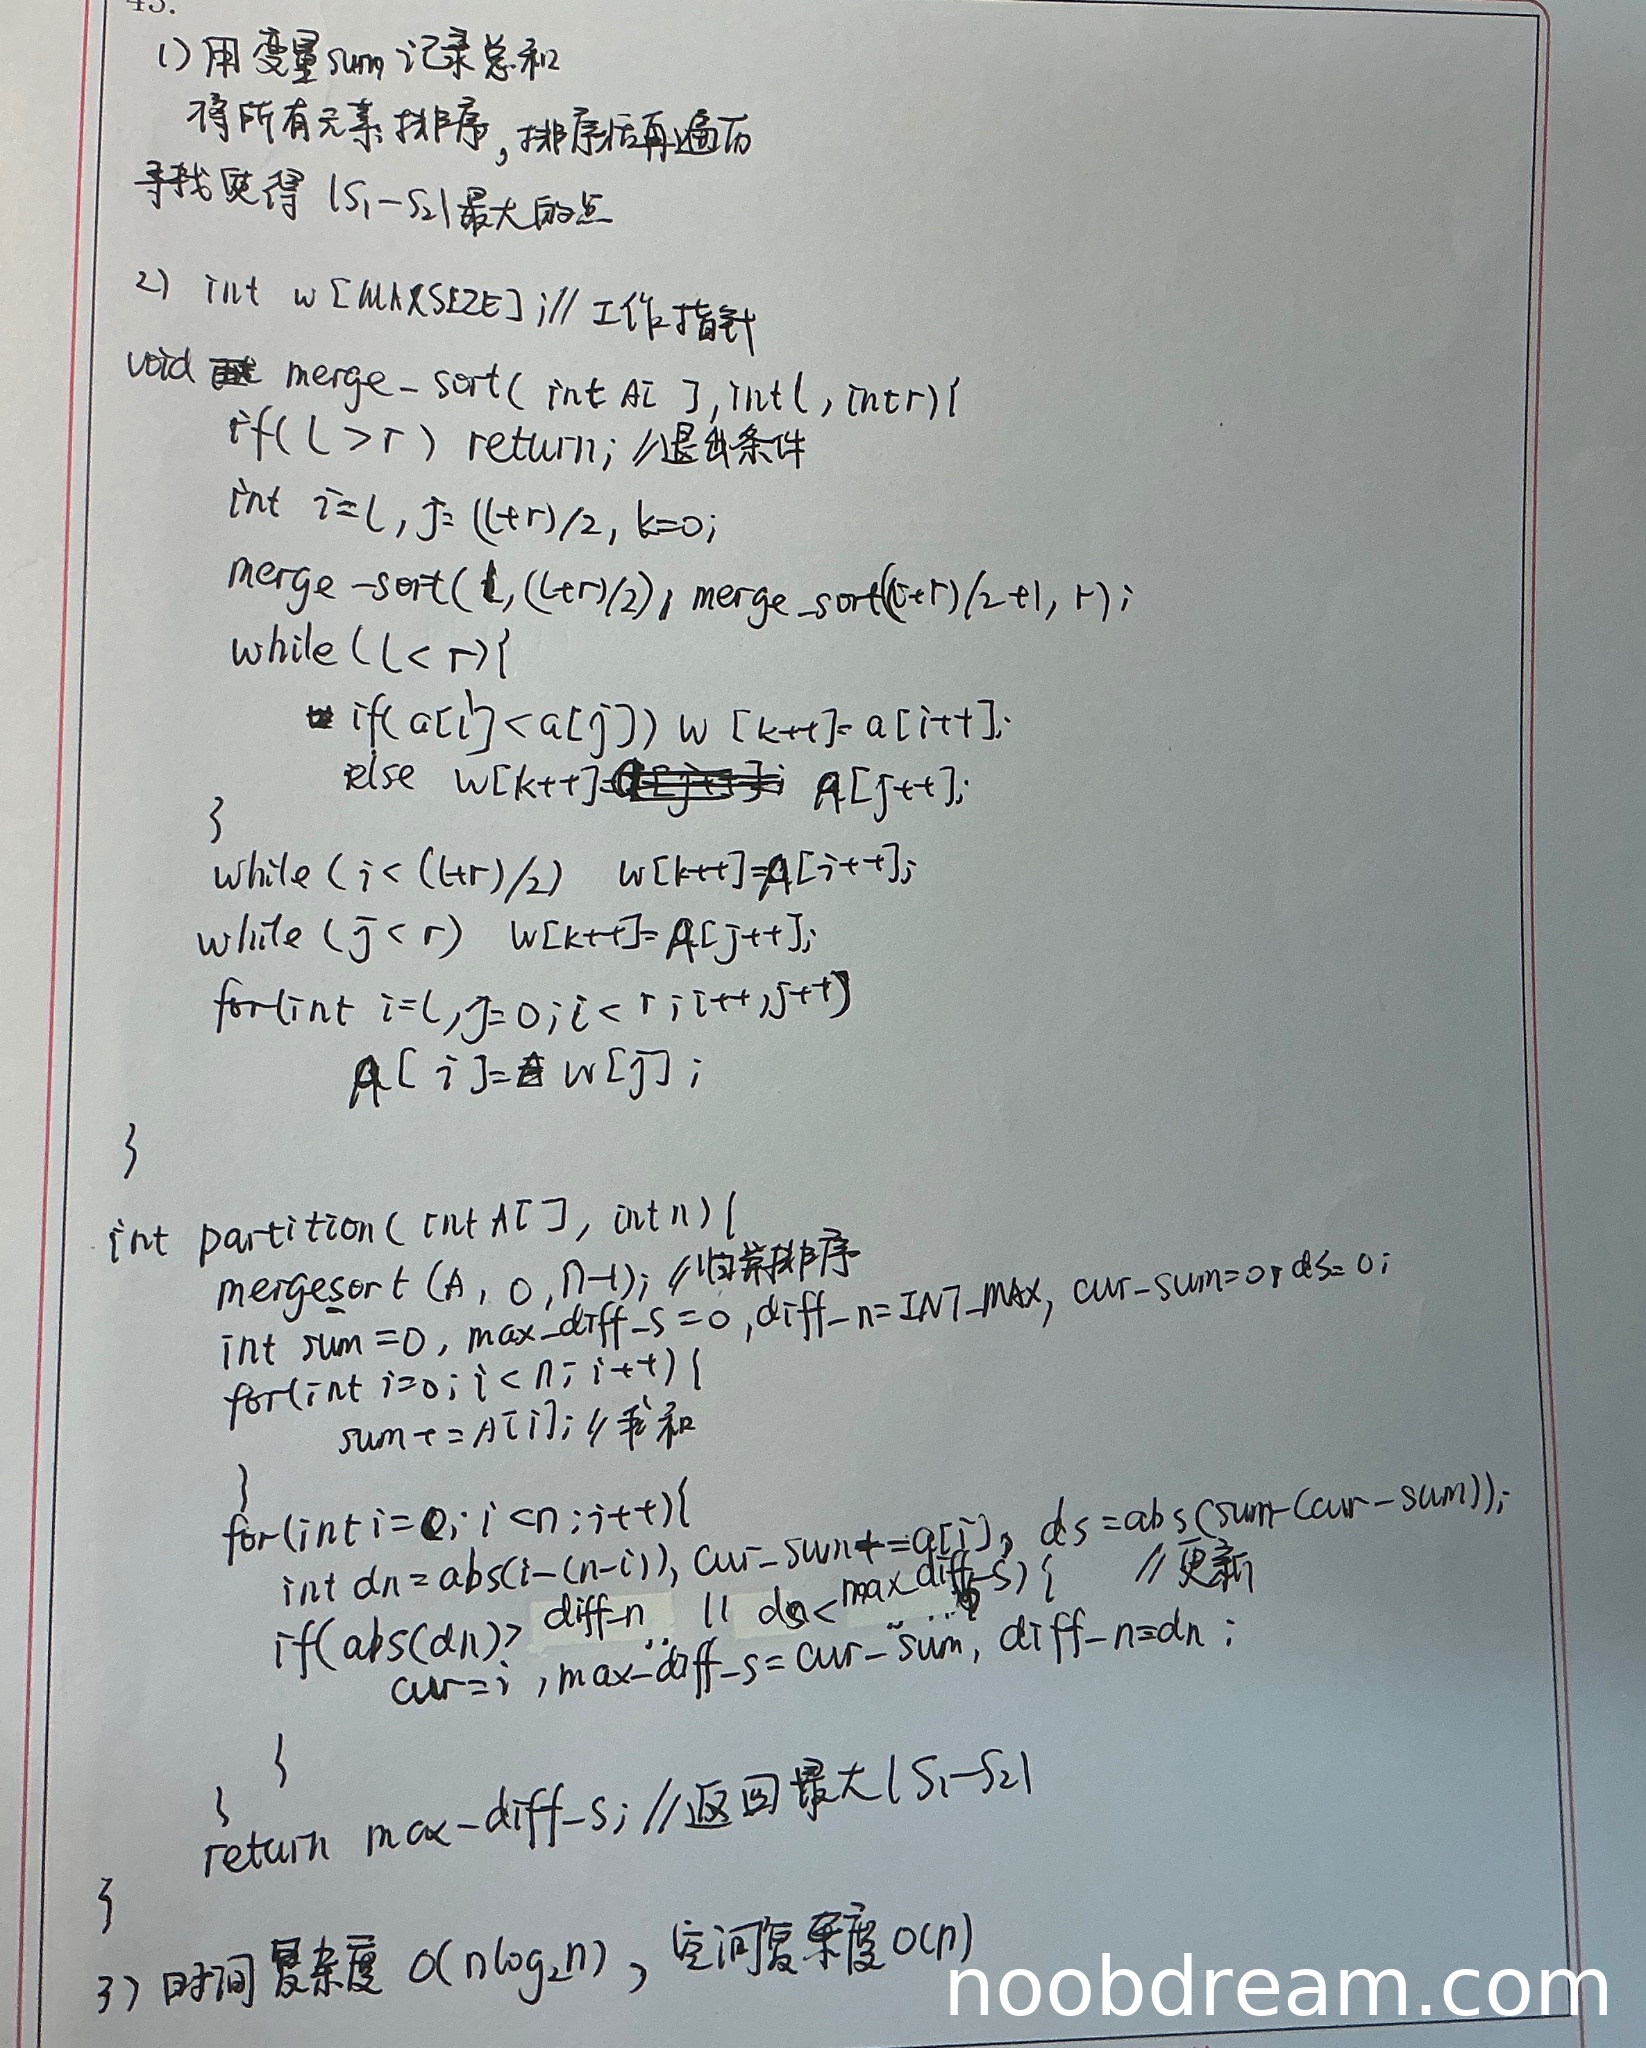 43.
1) 用变量sum记录总和
将所有元素排序，排序后再遍历
寻找使得 |S₁-S₂| 最大的点
2) int w[MAXSIZE]; // 工作指针
void merge_sort( int A[ ], int l, int r){
if( l > r ) return; //退出条件
int i=l, j= (l+r)/2, k=0;
merge_sort( l, (l+r)/2), merge_sort((l+r)/2+1, r);
while( l < r ){
if( a[i] < a[j] ) w [k++]= a[i++];
else w[k++]= A[j++];
}
while ( i < (l+r)/2 ) w[k++]=A[i++];
while ( j < r ) w[k++]= A[j++];
for(int i=l, j=0; i < r; i++, j++)
A[ i ]= w[j] ;
}
int partition( int A[ ], int n){
mergesort (A, 0, n-1); //归并排序
int sum =0, max_diff_s = 0, diff_n= INT_MAX, cur-sum=0, ds=0;
for(int i=0; i < n; i++){
sum += A[i]; // 求和
}
for(int i=0; i <n; i++){
int dn = abs(i-(n-i)), cur-sum+=a[i], ds=abs(sum-(cur-sum));
if(abs(dn)> diff-n || ds < max_diff-s){ //更新
cur=i, max-diff-s= cur-sum, diff-n=dn;
}
}
return max-diff-s; //返回最大|S₁-S₂|
}
3) 时间复杂度 O(nlog₂n), 空间复杂度O(n)
noobdream.com